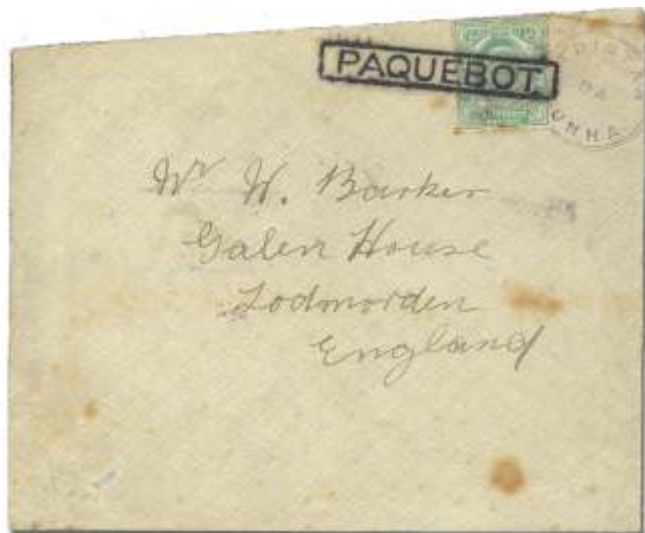 PAQUEBOT
Mr W. Barker
Galen House
Todmorden
England